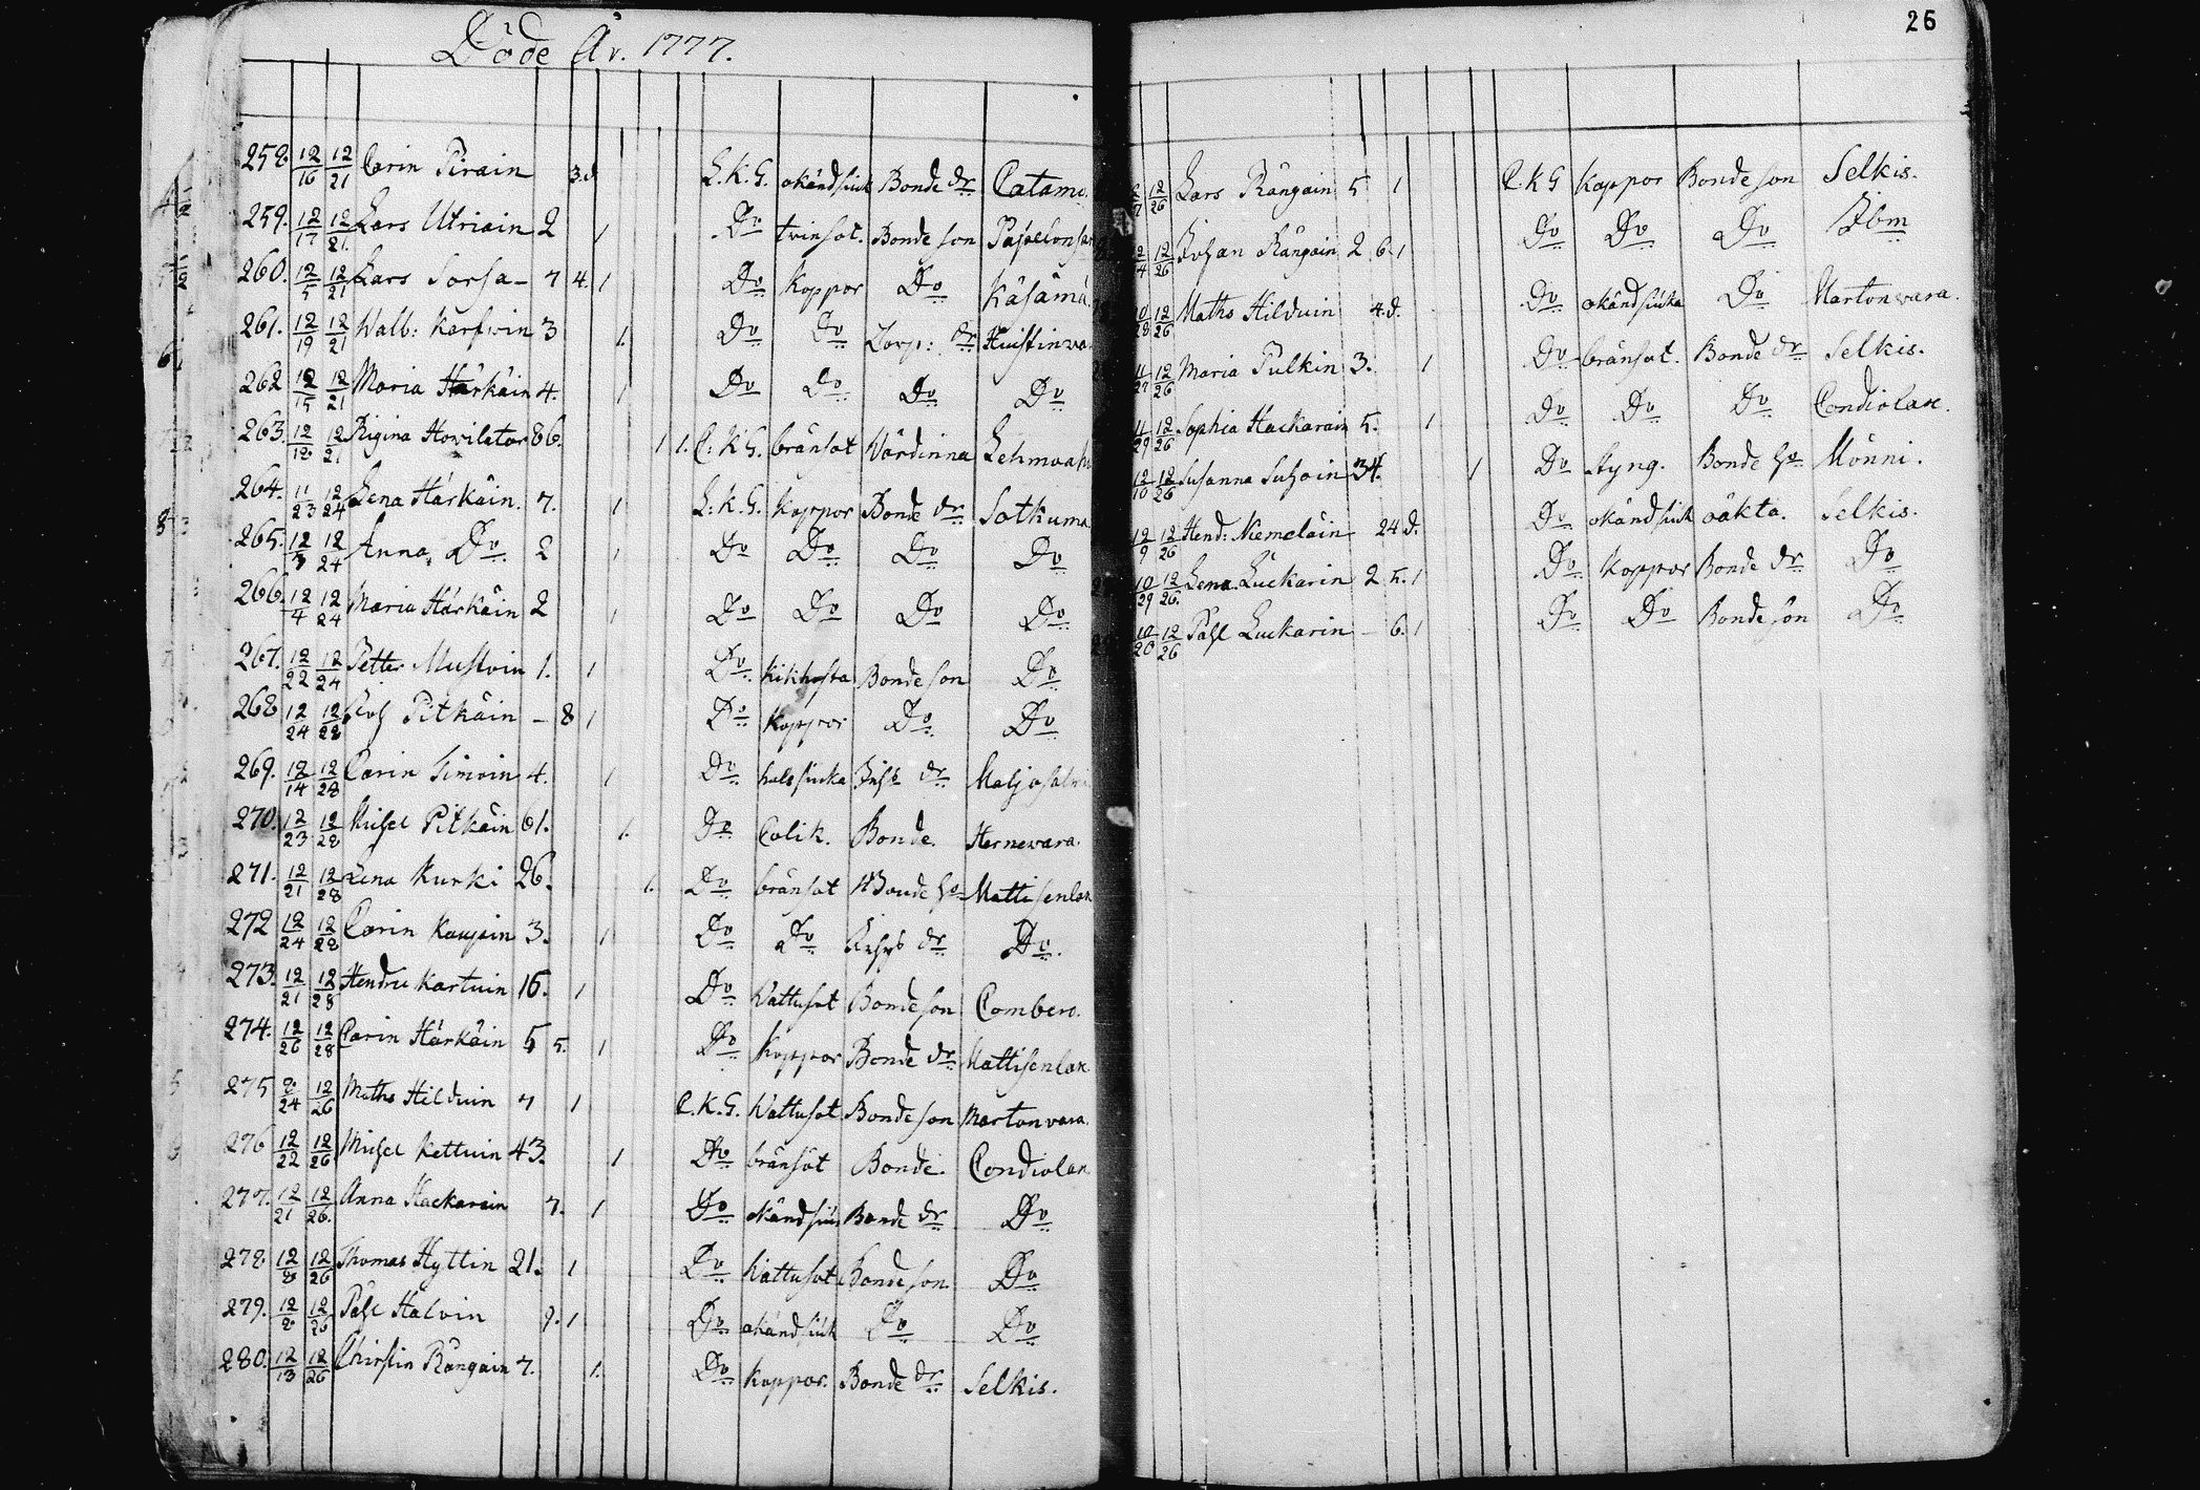 Döde År. 1777.
258. 12/16 12/21 Carin Pirain 3.d. L.K.G. okändsiuk Bonde dr Catamo.
259. 12/17 12/21 Lars Utriain 2 1 Do tvinsot. Bonde son
260. 12/5 12/21 Lars Sorsa - 7 4. 1 Do Koppor Do Käsämä
261. 12/19 12/21 Walb: Karfvin 3 1. Do Do Torp: dr
262 12/15 12/21 Maria Härkäin 4. 1 Do Do Do Do
263. 12/12 12/21 Rigina Hovilator 86. 1 1. C:K.G. bränsot Värdinna
264. 11/23 12/24 Lena Härkäin. 7. 1 L:K.G. Koppor Bonde dr Sotkuma
265. 12/3 12/24 Anna Do 2 1 Do Do Do Do
266. 12/4 12/24 Maria Härkäin 2 1 Do Do Do Do
267. 12/22 12/24 Petter Mustoin 1. 1 Do kikhosta Bonde son Do
268 12/24 12/28 Pitkäin - 8 1 Do Koppor Do Do
269. 12/14 12/28 Carin Simoin 4. 1 Do halssiuka dr
270. 12/23 12/28 Michel Pitkäin 61. 1. Do Colik. Bonde. Hernevara.
271. 12/21 12/28 Lena Kurki 26. 1. Do bränsot Bonde Mattisenlax
272 12/24 12/28 Carin Kaupin 3. 1 Do Do dr Do.
273. 12/21 12/28 Hendric Kartuin 16. 1 Do Wattusot Bonde son Combero.
274. 12/26 12/28 Carin Härkäin 5 5. 1 Do Koppor Bonde dr Mattisenlax
275 12/26 Maths Hilduin 7 1 C.K.G. Wattusot Bonde son Martonvara.
276 12/22 12/26 Michel Kettuin 43. 1 Do bränsot Bonde. Condiolax
277. 12/21 12/26. Anna Hackarain 7. 1 Do Bonde dr Do
278 12/8 12/26 Thomas Hyttin 21. 1 Do Wattusot Bonde son Do
279. 12/26 Påhl Halvin 9. 1 Do okändsiuk Do Do
280. 12/13 12/26 Chirstin Rångain 7. 1. Do Koppor. Bonde dr Selkis.
26
12/26 Lars Rångain 5 1 C.K.G Koppor Bonde son Selkis.
12/26 Johan Rångain 2 6. 1 Do Do Do Ibm
12/26 Maths Hilduin 4.d. Do okändsiuka Do Martonvara.
12/26 Maria Pulkin 3. 1 Do bränsot. Bonde dr Selkis.
11/29 12/26 Sophia Hackarain 5. 1 Do Do Do Condiolax.
12/10 12/26 Susanna 34. 1 Do Styng. Bonde Mönni.
12/9 12/26 Hend: Nemeläin 24 d. Do okändsiuk oäkta. Selkis.
10/29 12/26. Lena Luckarin 2 5. 1 Do Koppor Bonde dr Do
10/20 12/26 Påhl Luckarin - 6. 1 Do Do Bonde son Do